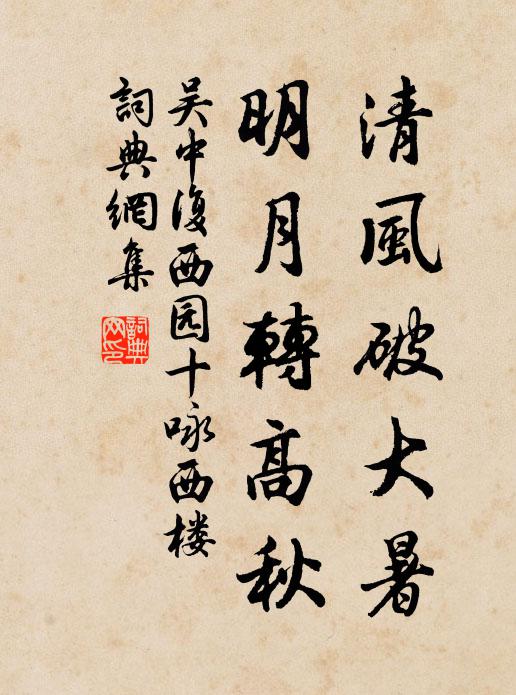 清風破大暑
明月轉高秋
吴中復西园十咏西楼
詞典網集
詞典网印